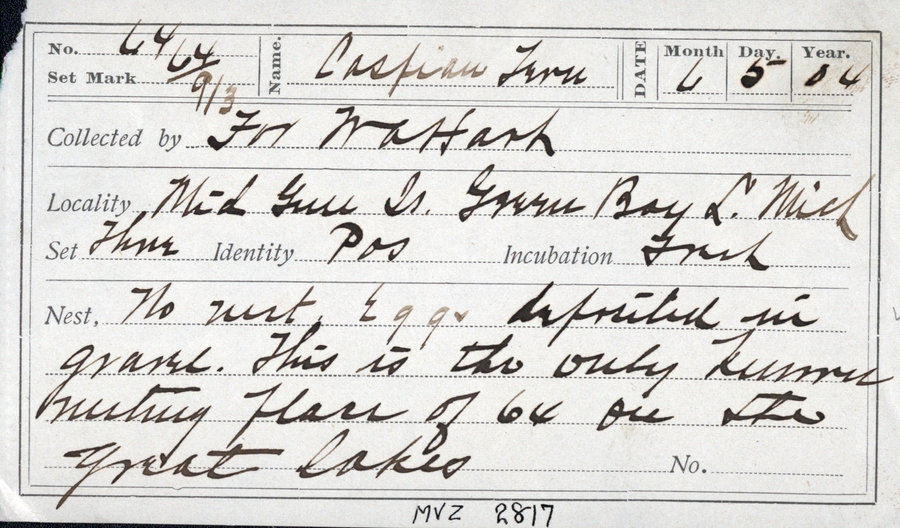 No. 64 Name. Caspian Tern DATE Month Day. Year.
Set Mark 64/9/3 6 5 04
Collected by For
Locality Mid Is. Green Bay L. Mich
Set Three Identity Pos Incubation Fresh
Nest, No nest. Eggs deposited in
gravel. This is the only known
nesting place of 64 on the
Great Lakes No.
MVZ 2817